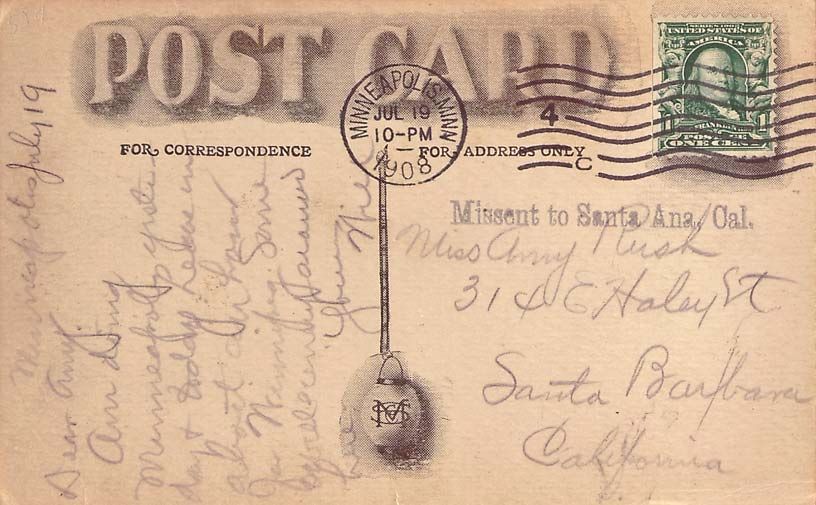 POST CARD
SERIES 1902
UNITED STATES OF AMERICA
ONE CENT
MINNEAPOLIS, MINN
JUL 19
10-PM
1908
4
C
FOR CORRESPONDENCE
FOR ADDRESS ONLY
Missent to Santa Ana, Cal.
Miss Amy Rush
314 E Haley St
Santa Barbara
California
Minneapolis July 19
Dear Amy
Am doing
Minneapolis yester
day & today Leave in
about an hour
for Winnipeg Some